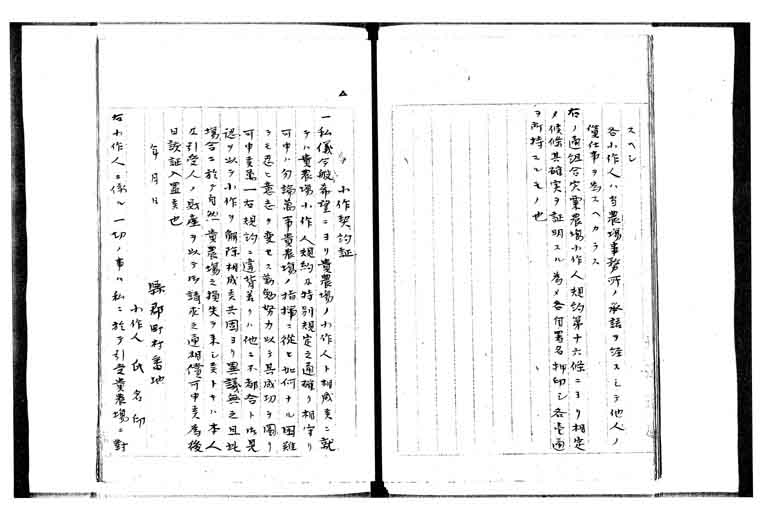 スヘシ
各小作人ハ当農場事務所ノ承諾ヲ経スシテ他人ノ
賃仕事ヲ為スヘカラス
右ノ通組合穴粟農場小作人規約第十六條ニヨリ相定
メ候條其確実ヲ証明スル為メ各自署名押印シ各壱通
ヲ所持スルモノ也
小作契約証
一私儀今般希望ニヨリ貴農場ノ小作人ト相成候ニ就
テハ貴農場小作人規約及特別規定之通確ク相守リ
可申ハ勿論萬事貴農場ノ指揮ニ從ヒ如何ナル困難
ヲモ忍ヒ意志ヲ変セス勤勉努力以テ其成功ヲ図リ
可申候萬一右規約ニ違背若クハ他ニ不都合ト御見
認ヲ以テ小作ヲ解除相成候共固ヨリ異議無之且此
場合ニ於テ自然貴農場之損失ヲ来シ候トキハ本人
及引受人ノ財産ヲ以テ御請求之通相償可申候為後
日誓証入置候也
年月日
縣郡町村番地
小作人氏名印
右小作人ニ係ル一切ノ事ハ私ニ於テ引受貴農場ニ對